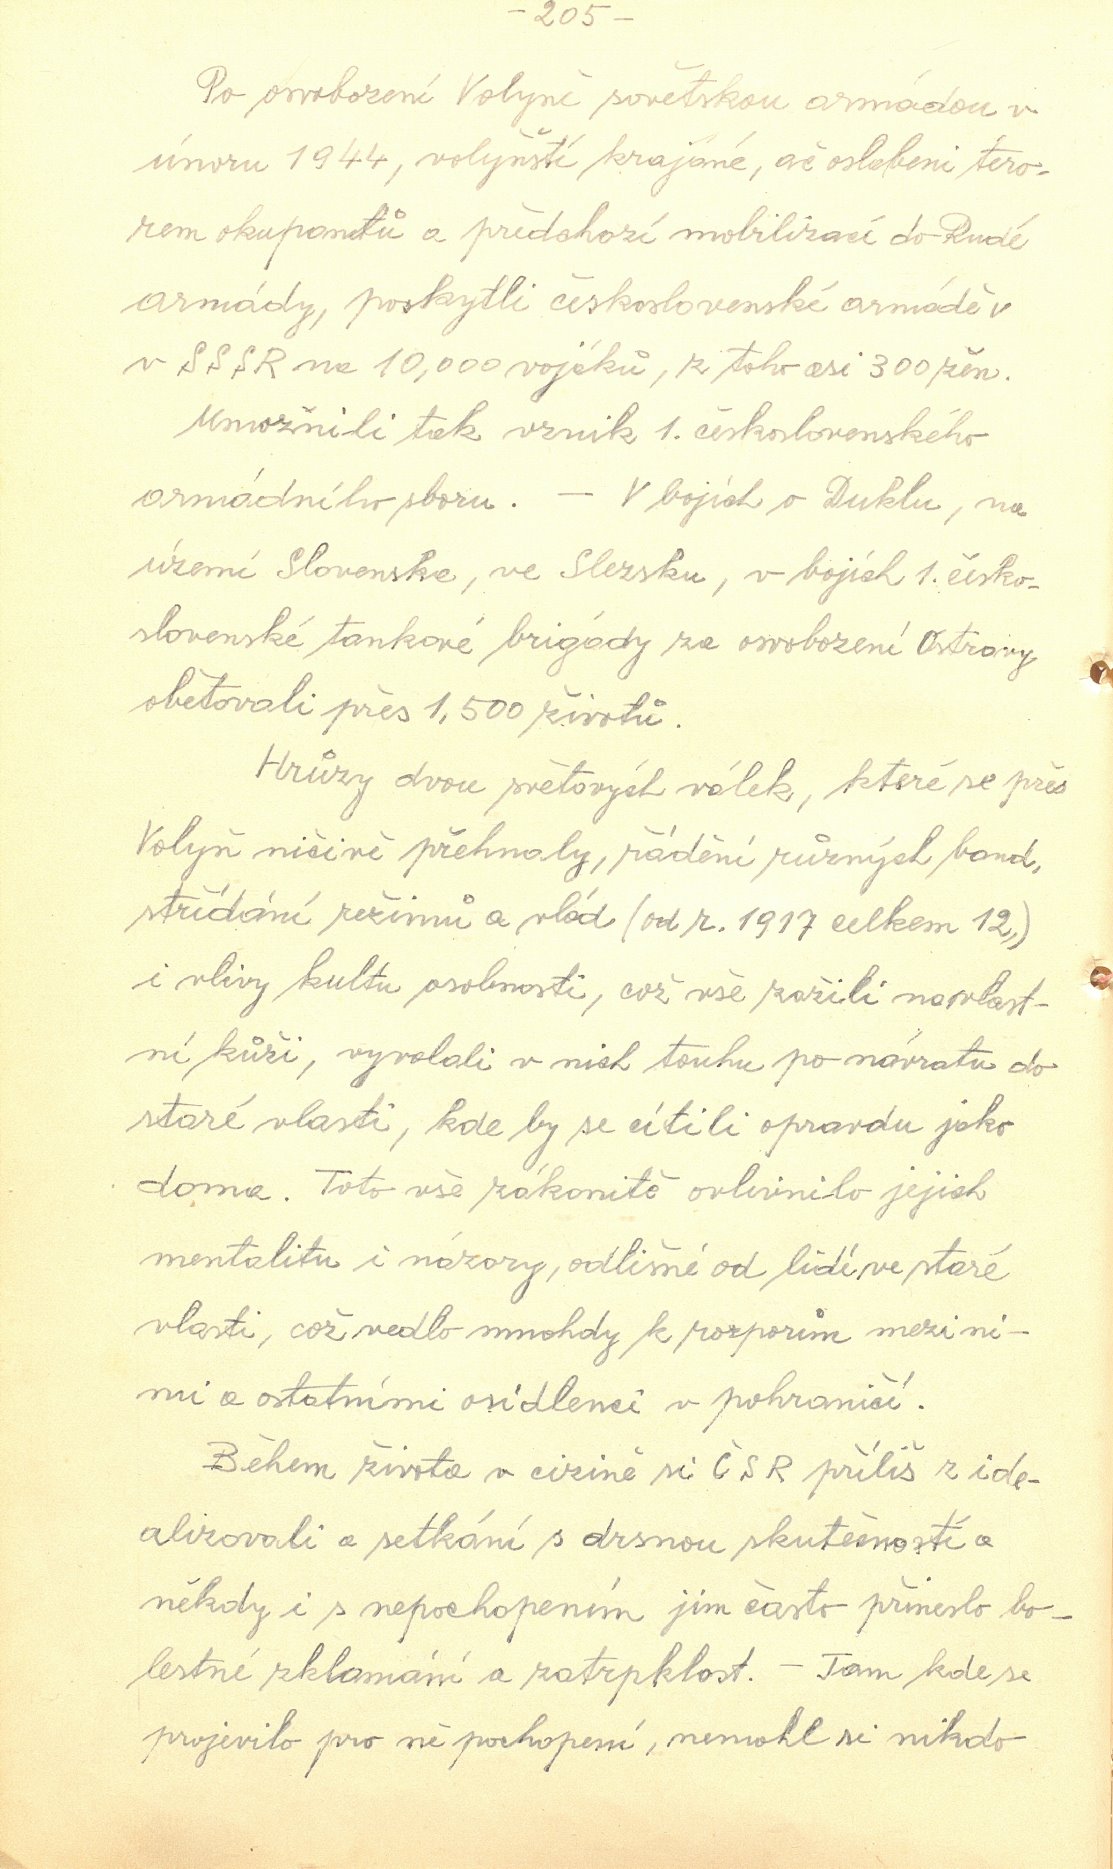 - 205 -
Po osvobození Volyně sovětskou armádou v
únoru 1944, volyňští krajané, ač oslabeni tero-
rem okupantů a předchozí mobilizací do Rudé
armády, poskytli československé armádě v
v SSSR na 10,000 vojáků, z toho asi 300 žen.
Umožnili tak vznik 1. československého
armádního sboru. — V bojích o Duklu, na
území Slovenska, ve Slezsku, v bojích 1. česko-
slovenské tankové brigády za osvobození Ostravy
obětovali přes 1,500 životů.
Hrůzy dvou světových válek, které se přes
Volyň ničivě přehnaly, řádění různých band,
střídání režimů a vlád (od r. 1917 celkem 12,)
i vlivy kultu osobnosti, což vše zažili na vlast-
ní kůži, vyvolali v nich touhu po návratu do
staré vlasti, kde by se cítili opravdu jako
doma. Toto vše zákonitě ovlivnilo jejich
mentalitu i názory, odlišné od lidí ve staré
vlasti, což vedlo mnohdy k rozporům mezi ni-
mi a ostatními osídlenci v pohraničí.
Během života v cizině si ČSR příliš z ide-
alizovali a setkání s drsnou skutečností a
někdy i s nepochopením jim často přineslo bo-
lestné zklamání a zatrpklost. — Tam kde se
projevilo pro ně pochopení, nemohl si nikdo